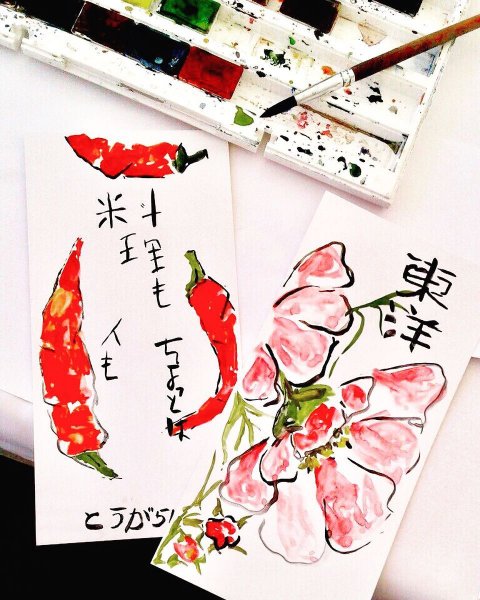 料理も
人も
ちょっとは
とうがらし
東洋